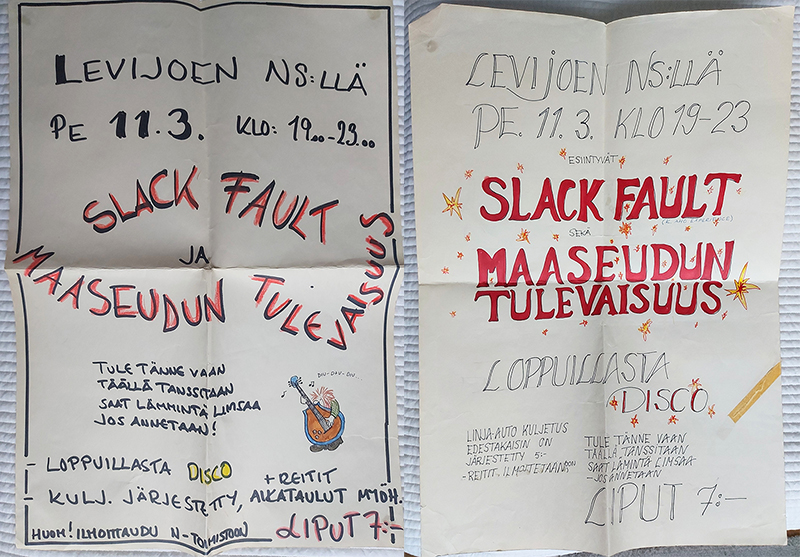 LEVIJOEN NS:LLÄ
PE 11.3. KLO: 19.00-23.00
SLACK FAULT
JA
MAASEUDUN TULEVAISUUS
TULE TÄNNE VAAN
TÄÄLLÄ TANSSITAAN
SAAT LÄMMINTÄ LIMSAA
JOS ANNETAAN!
DIU-DAU-DIU...
- LOPPUILLASTA DISCO
+ REITIT
- KULJ. JÄRJESTETTY, AIKATAULUT MYÖH.
HUOM! ILMOITTAUDU N-TOIMISTOON
LIPUT 7:-
LEVIJOEN NS:LLÄ
PE. 11.3. KLO 19-23
ESIINTYVÄT
SLACK FAULT
SEKÄ
MAASEUDUN
TULEVAISUUS
LOPPUILLASTA
DISCO
LINJA-AUTO KULJETUS
EDESTAKAISIN ON
JÄRJESTETTY 5:-
- REITIT ILMOITETAAN
TULE TÄNNE VAAN
TÄÄLLÄ TANSSITAAN
SAAT LÄMINTÄ LIMSAA
- JOS ANNETAAN
LIPUT 7:-